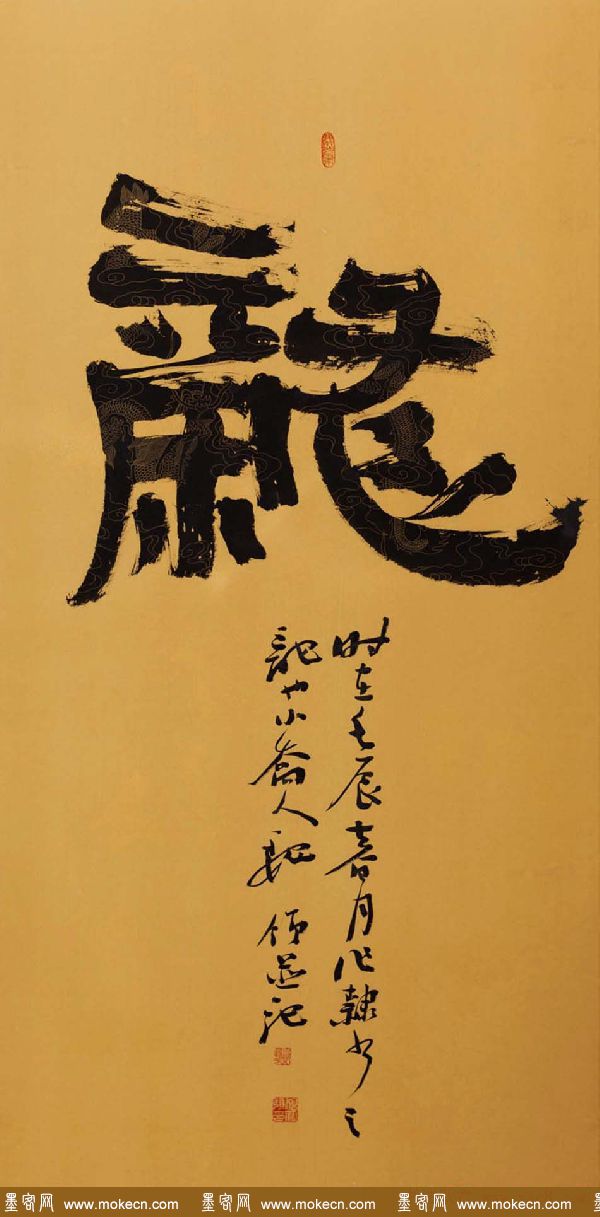 龍
时在壬辰春月作隸书之
記也小喬人
並记
墨客网 www.mokecn.com 墨客网 www.mokecn.com 墨客网 www.mokecn.com 墨客